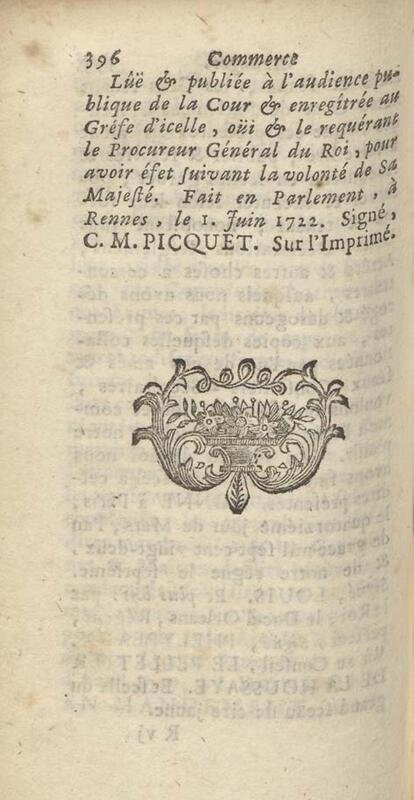 396 Commerce
Lûë & publiée à l'audience pu-
blique de la Cour & enregîtrée au
Gréfe d'icelle, oüi & le requérant
le Procureur Général du Roi, pour
avoir éfet ſuivant la volonté de Sa
Majeſté. Fait en Parlement, à
Rennes, le 1. Juin 1722. Signé,
C. M. PICQUET. Sur l'Imprimé.